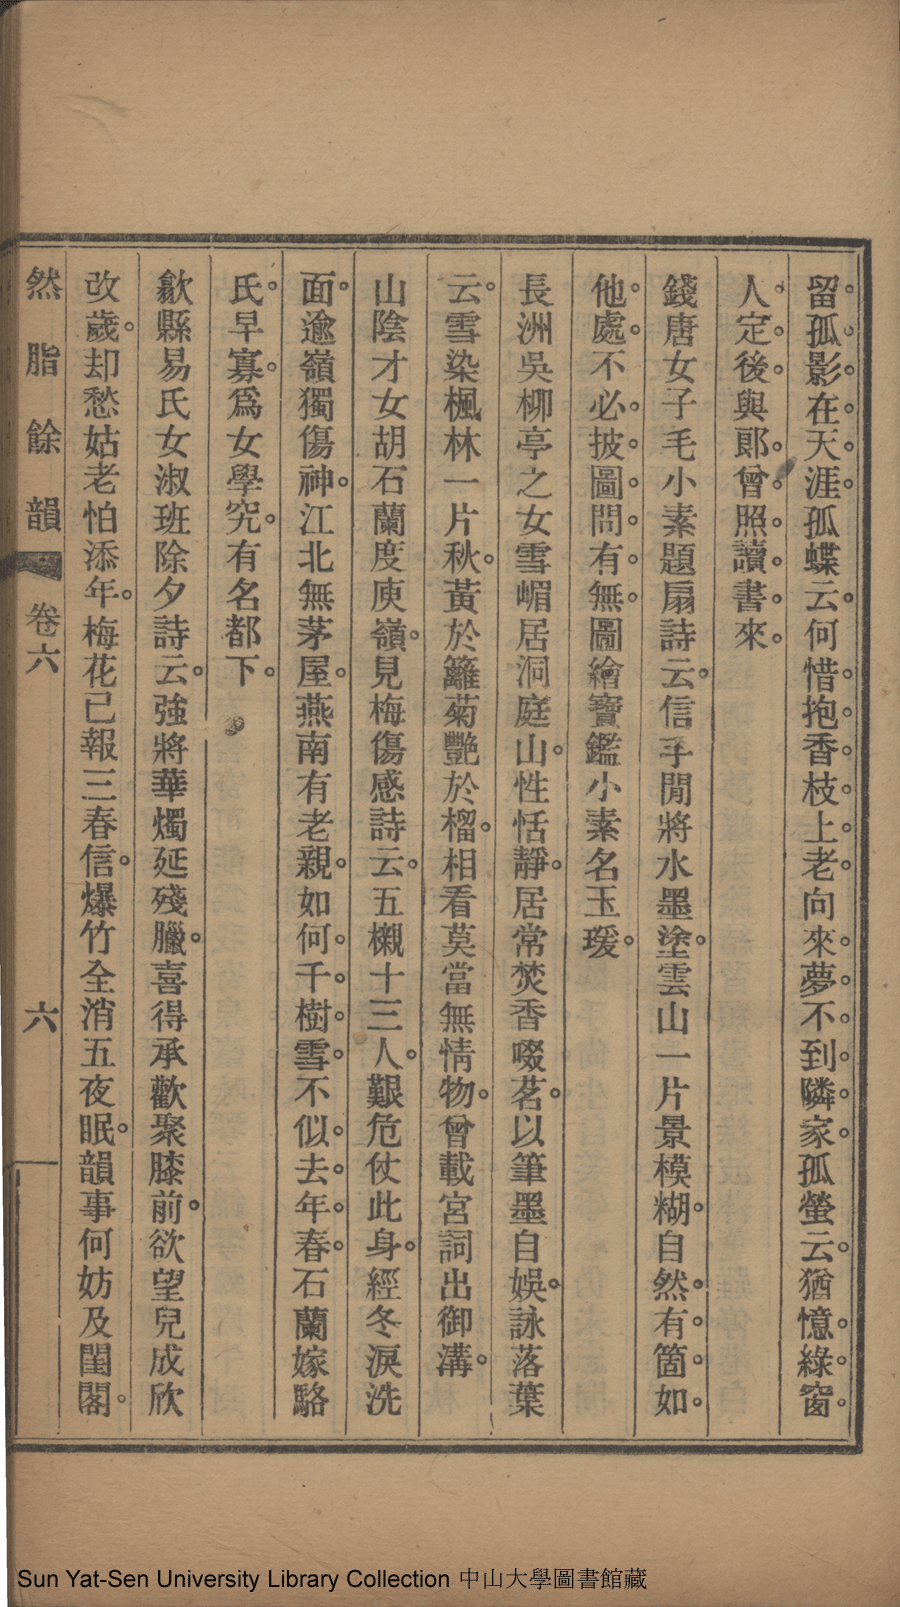 留孤影在天涯孤蝶云何惜抱香枝上老向來夢不到隣家孤螢云猶憶綠窗
人定後與郎曾照讀書來
錢唐女子毛小素題扇詩云信手閒將水墨塗雲山一片景模糊自然有箇如
他處不必披圖問有無圖繪寶鑑小素名玉瑗
長洲吳柳亭之女雪嵋居洞庭山性恬靜居常焚香啜茗以筆墨自娛詠落葉
云雪染楓林一片秋黃於籬菊艷於榴相看莫當無情物曾載宮詞出御溝
山陰才女胡石蘭度庾嶺見梅傷感詩云五櫬十三人艱危仗此身經冬淚洗
面逾嶺獨傷神江北無茅屋燕南有老親如何千樹雪不似去年春石蘭嫁駱
氏早寡爲女學究有名都下
歙縣易氏女淑班除夕詩云強將華燭延殘臘喜得承歡聚膝前欲望兒成欣
改歲却愁姑老怕添年梅花已報三春信爆竹全消五夜眠韻事何妨及閨閣
然脂餘韻 卷六 六
Sun Yat-Sen University Library Collection 中山大學圖書館藏